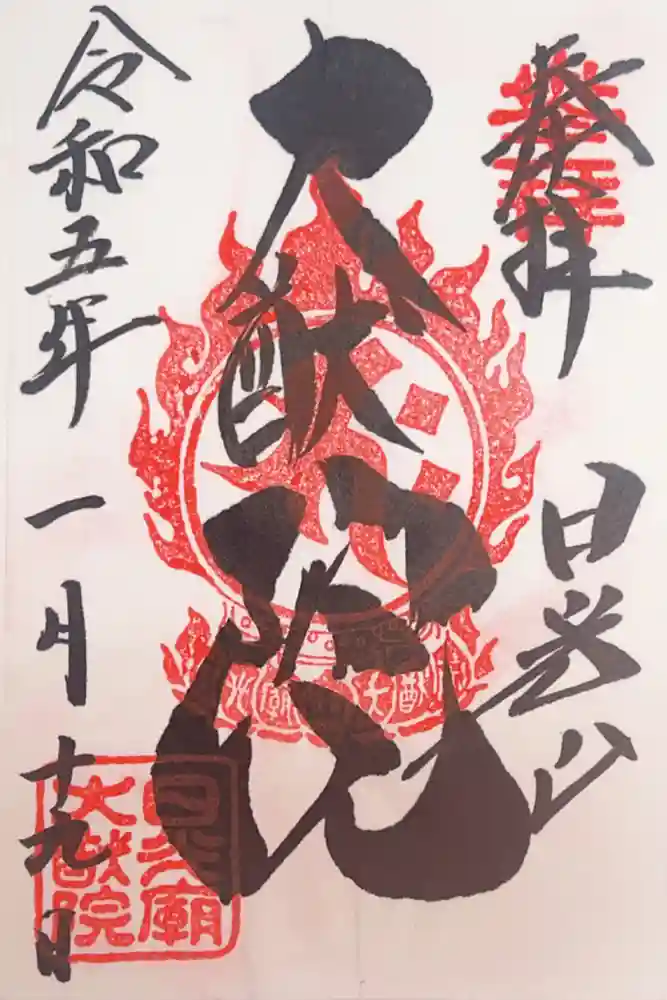 奉拝
日光山
大猷院
令和五年
一月
十九日
日光廟
大猷院